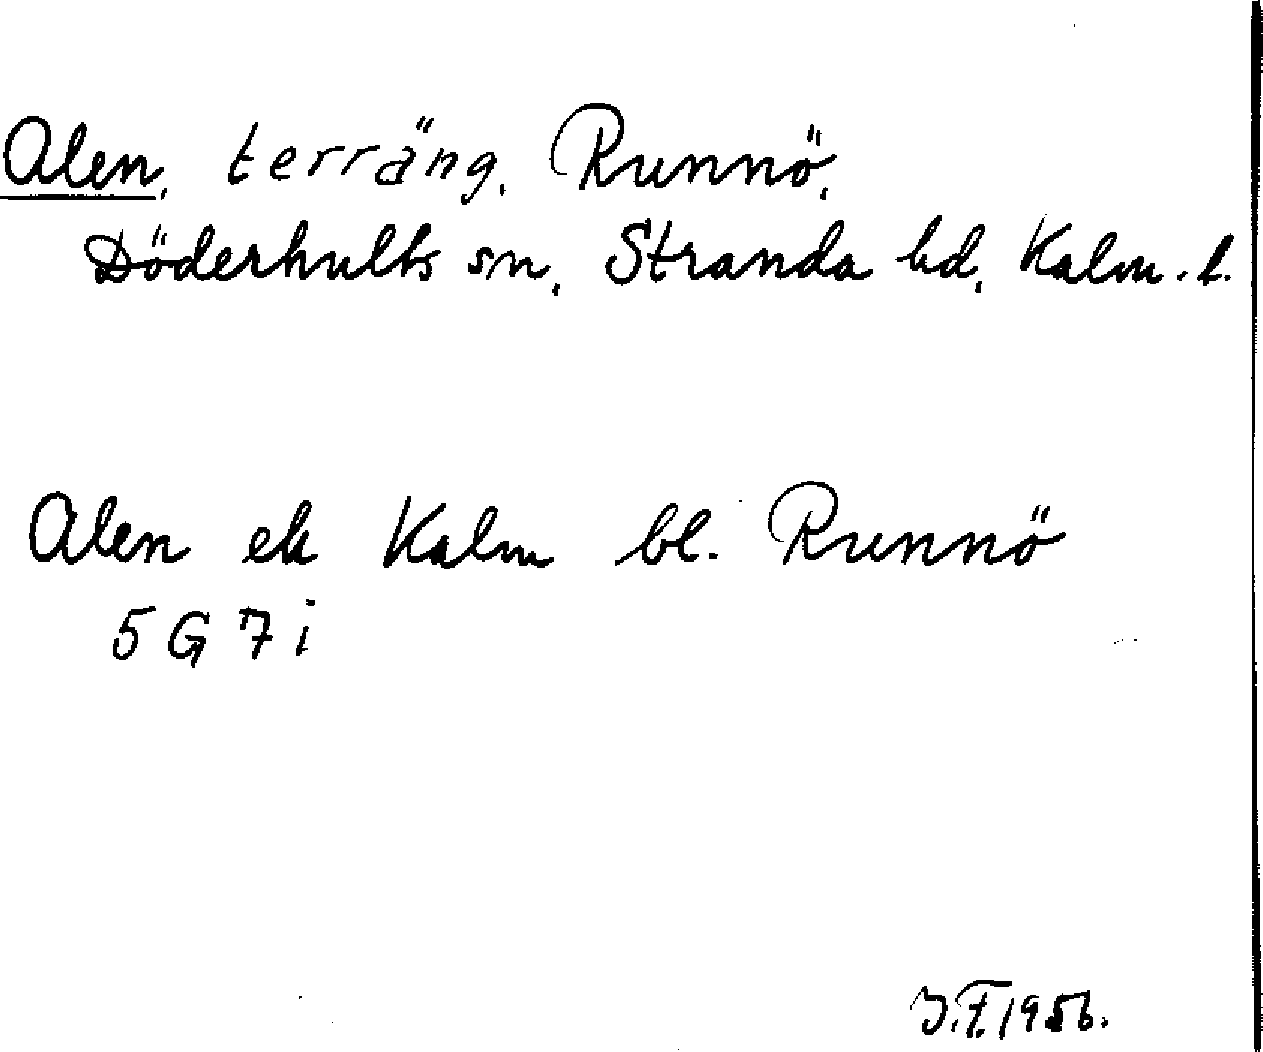 Alen, terräng, Runnö,
Döderhults sn, Stranda hd, Kalm. l.
Alen ek Kalm bl. Runnö
5 G 7 i
J.F. 1956.